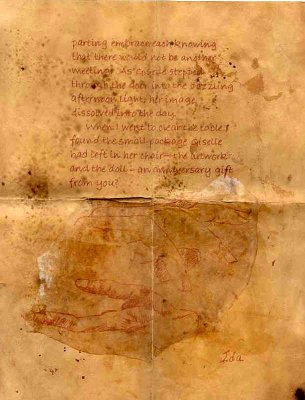 parting embrace each knowing
that there would not be another
meeting. As Giselle stepped
through the door into the dazzling
afternoon light, her image
dissolved into the day.
When I went to clear the table I
found the small package Giselle
had left in her chair – the artwork
and the doll – an anniversary gift
from you?
Ida